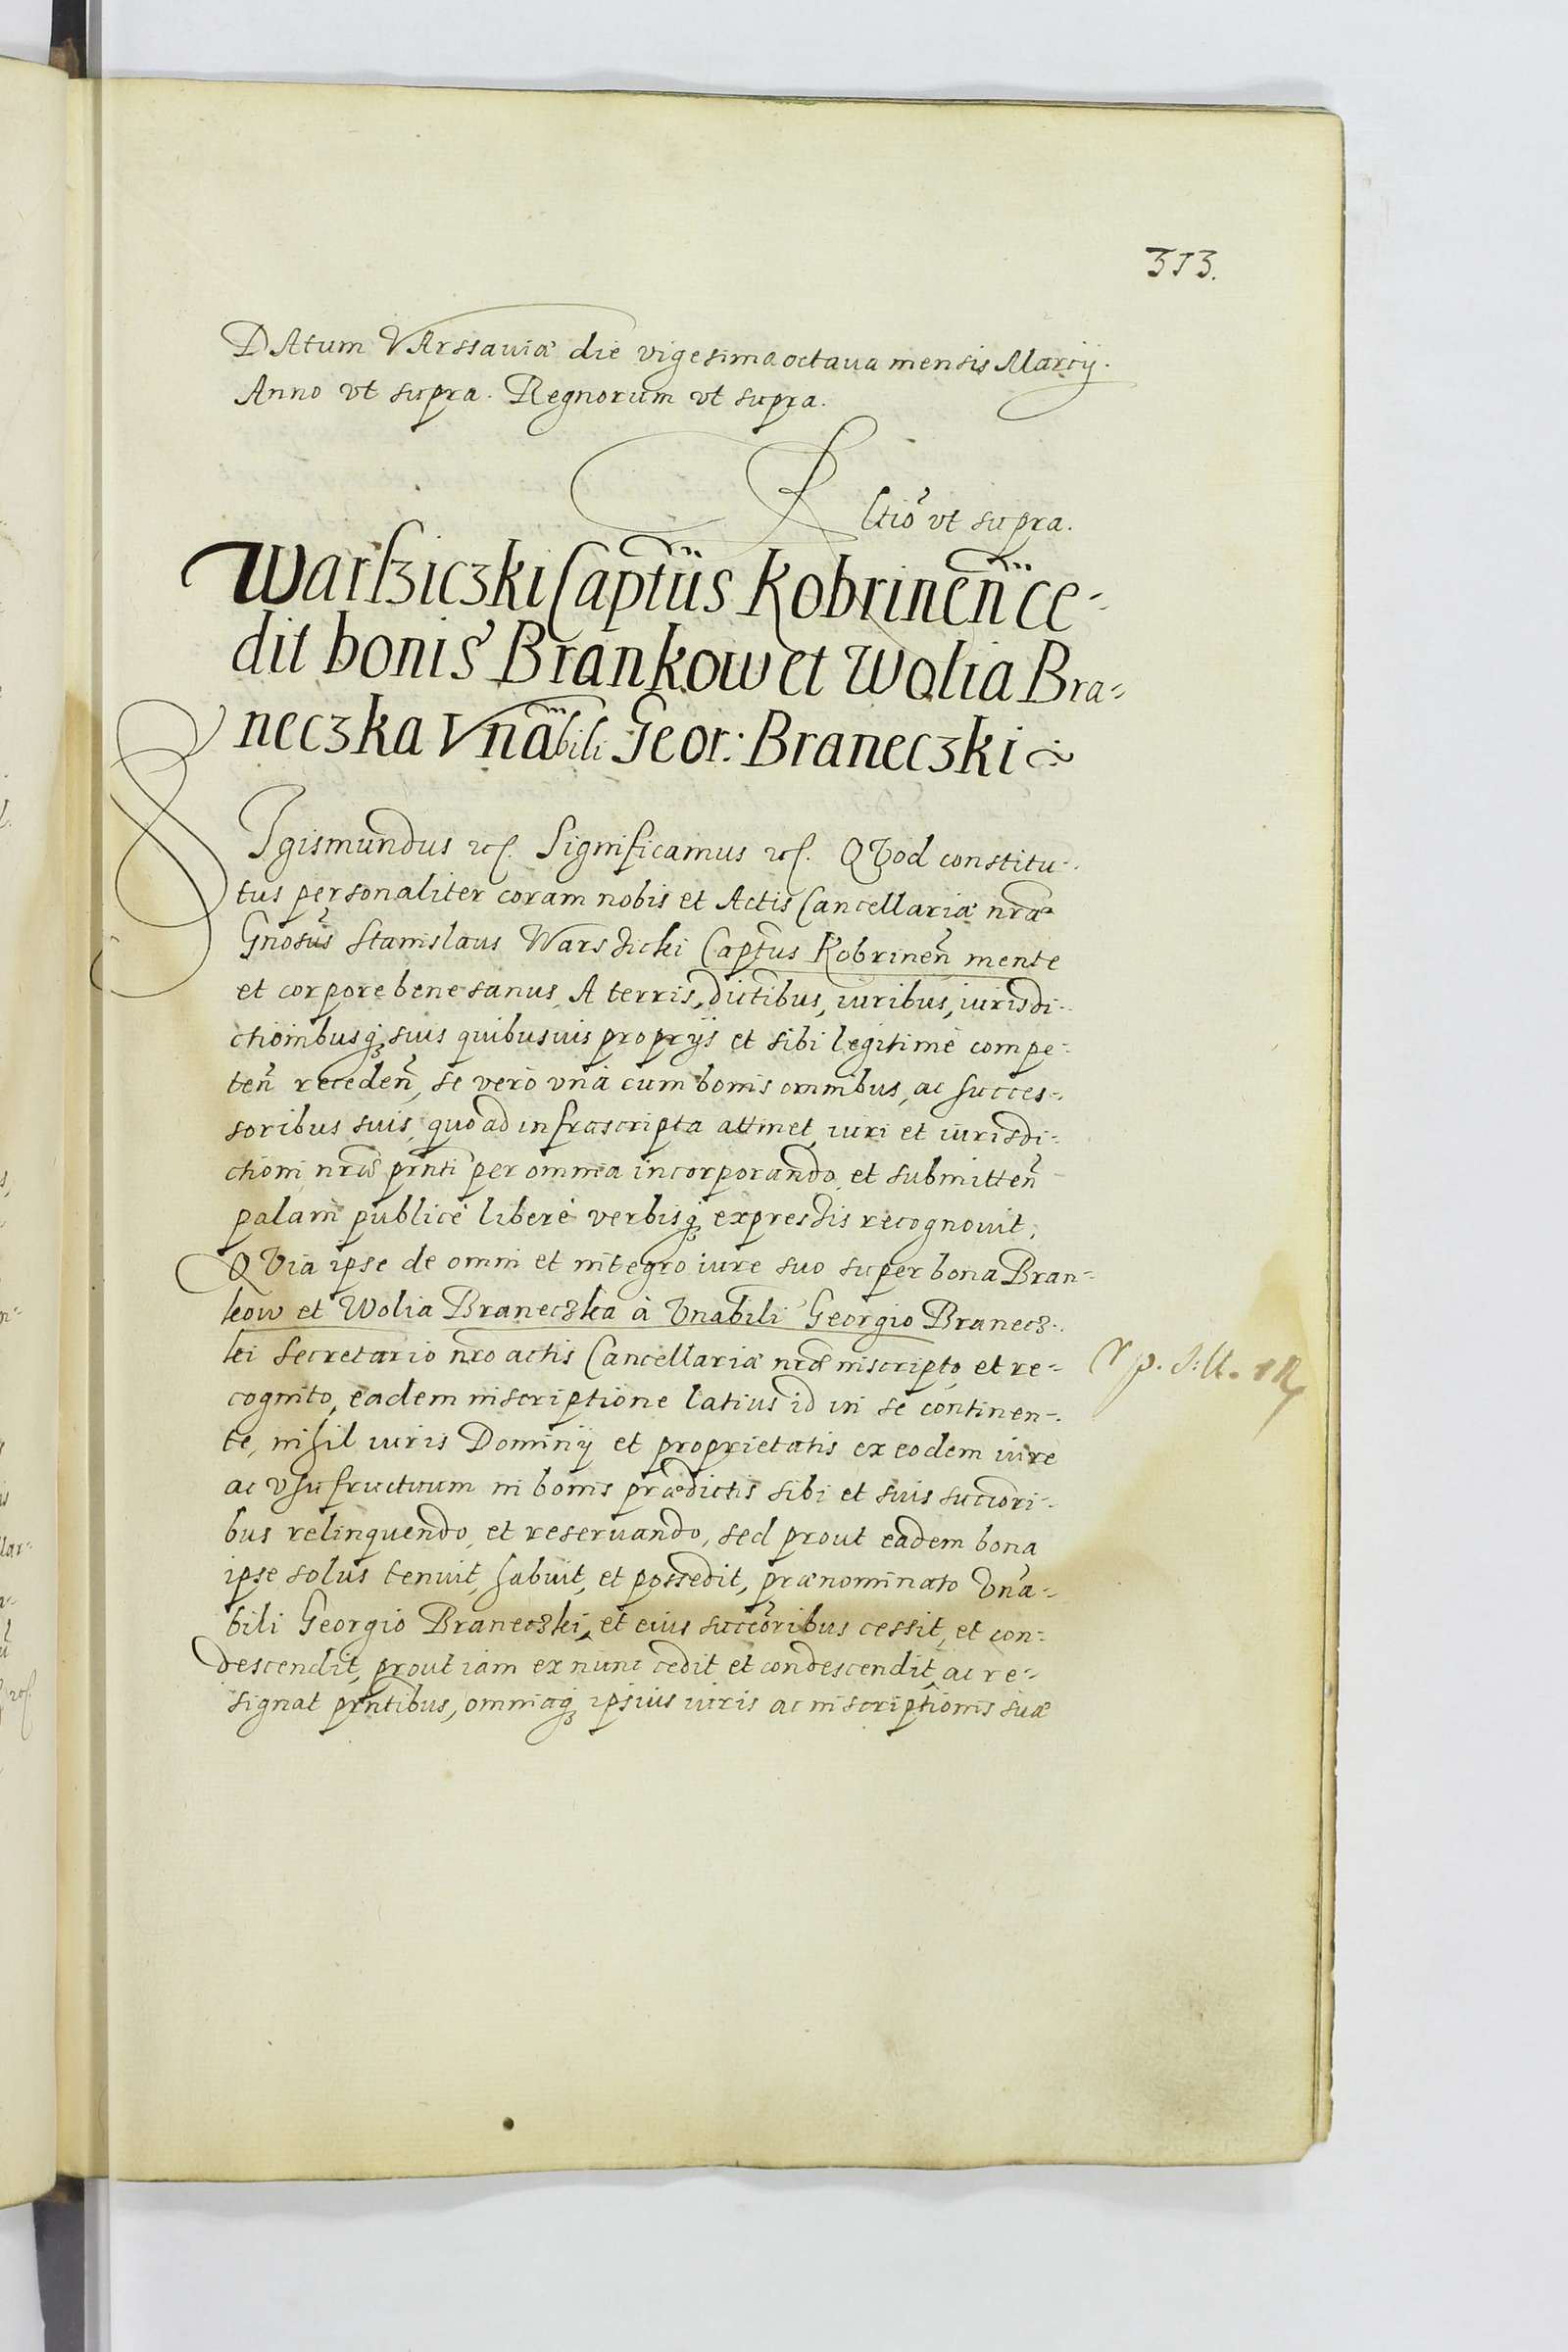 313.
DAtum VArssauiæ die vigesima octaua mensis Marcij.
Anno vt supra. Regnorum vt supra.
Rltiõ vt supra.
Warsziczki Capt̃us Kobrineñ ce-
dit bonis Brankow et Wolia Bra-
neczka Vnãbili Geor: Braneczki
SIgismundus etc. Significamus etc. QVod constitu-
tus personaliter coram nobis et Actis Cancellariæ nr̃æ
Gnosus̃ Stanislaus Warszicki Capt̃us Kobrineñ mente
et corpore bene sanus, A terris, dictibus, iuribus, iurisdi-
ctionibusq; suis quibusuis proprijs et sibi legitimè compe-
teñ recedeñ, se verò vnà cum bonis omnibus, ac succes-
soribus suis, quo ad infrascripta attinet, iuri et iurisdi-
ctioni nr̃æ pr̃nti per omnia incorporando, et submitteñ
palam publicè liberè verbisq; expressis recognouit,
QVia ipse de omni et integro iure suo super bona Bran-
kow et Wolia Braneczka à Vnabili Georgio Branecz-
ki Secretario nr̃o actis Cancellariæ nr̃æ inscripto, et re-
cognito, eadem inscriptione latius id in se continen-
te, nihil iuris Dominij et proprietatis ex eodem iure
ac vsufructuum in bonis prædictis sibi et suis succ̃ori-
bus relinquendo, et reseruando, sed prout eadem bona
ipse solus tenuit, habuit, et possedit, prænominato Vña-
bili Georgio Braneczki, et eius succ̃oribus cessit, et con-
descendit, prout iam ex nunc cedit et condescendit, ac re-
signat pr̃ntibus, omniaq; ipsius iuris ac inscriptionis suæ